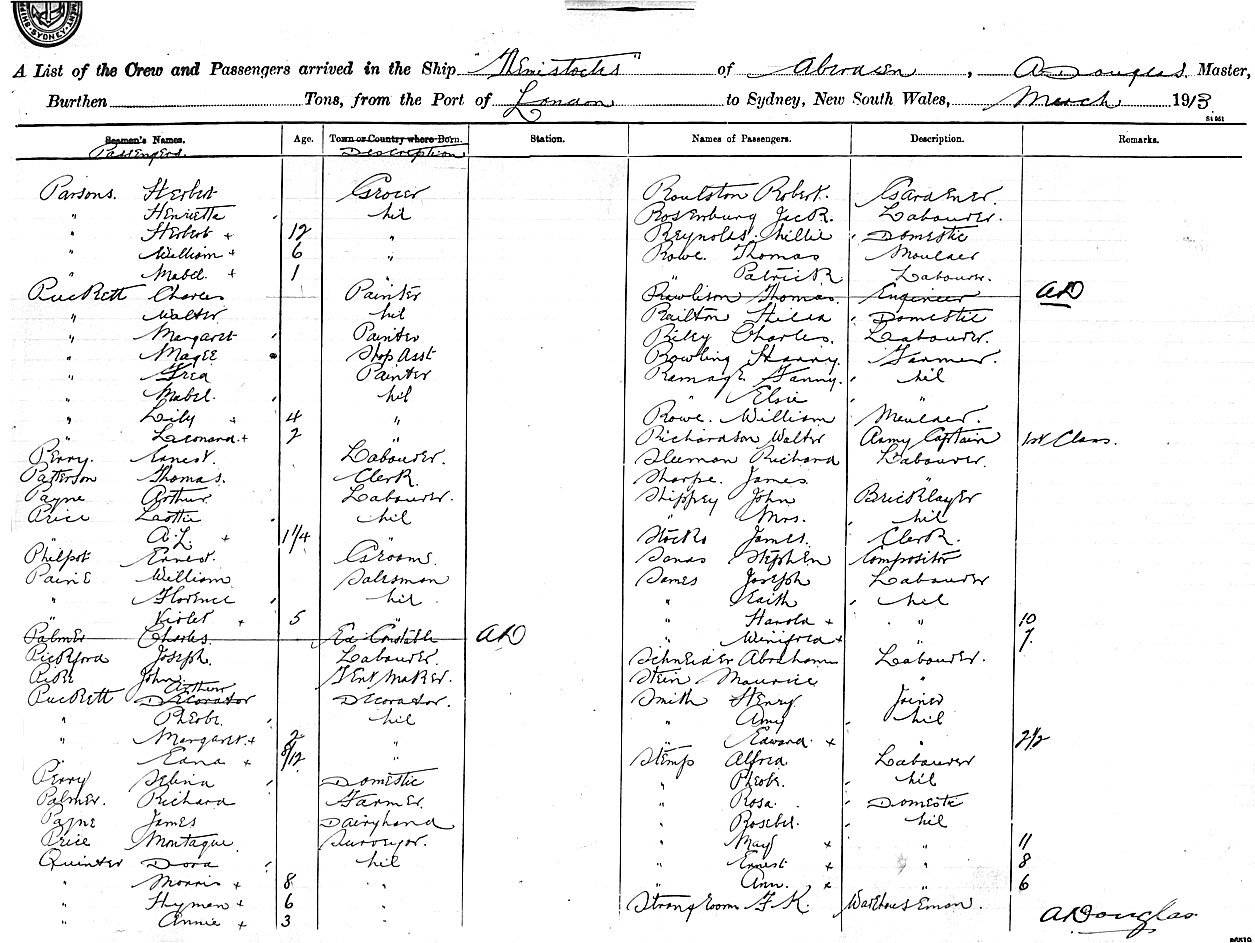 SHIPPING SYDNEY
A List of the Crew and Passengers arrived in the Ship "Themistocles" of Aberdeen, A Douglas, Master,
Burthen Tons, from the Port of London to Sydney, New South Wales, March 1913
St 961
Seamen's Names. Age. Town or Country where Born. Station. Names of Passengers. Description. Remarks.
Passengers. Description
Parsons. Herbert Grocer Roulston Robert. Gardener.
" Henrietta nil Rosenburg Jack. Labourer.
" Herbert + 12 " Reynolds. Millie Domestic
" William + 6 " Rowe. Thomas Moulder
" Mabel + 1 " " Patrick Labourer.
Puckett Charles Painter Rawlison Thomas. Engineer AD
" Walter nil Railton Hilda Domestic
" Margaret Painter Riley Charles. Labourer.
" Magee Shop Asst Rowling Hanny. Farmer.
" Fred Painter Ramage Fanny. nil
" Mabel. nil " Elsie "
" Lily + 4 " Rowe. William Moulder.
" Leonard + 2 " Richardson Walter Army Captain 1st Class.
Perry. Ernest. Labourer. Sleeman Richard Labourer.
Patterson Thomas. Clerk. Sharpe. James "
Payne Arthur Labourer. Shippey John Bricklayer
Price Lottie nil " Mrs. nil
" A.L. + 1 1/4 " Stocks James. Clerk.
Philpot Ernest. Groom. Sanas Stephen Compositor
Paine William Salesman James Joseph Labourer
" Florence nil " Edith nil
" Violet + 5 " " Harold + " 10
Palmer Charles. Ex Constable AD " Winifred + " 7.
Pickford Joseph. Labourer. Schneider Abraham Labourer.
Pike John. Tent Maker. Stein Maurice "
Puckett Decorator Arthur Decorator. Smith Henry Joiner
" Phoebe nil " Amy nil
" Margaret + 2 " " Edward + " 2 1/2
" Edna + 8/12 " Stemp Alfred Labourer
Perry Selina Domestic " Pheob. nil
Palmer. Richard Farmer. " Rosa. Domestic
Payne James Dairyhand " Rosebel. nil
Price Montague Surveyor. " May + " 11
Quinter Dora nil " Ernest + " 8
" Morris + 8 " " Ann. + " 6
" Hyman + 6 " Strangroom F.K. Warehouseman.
" Annie + 3 " A Douglas